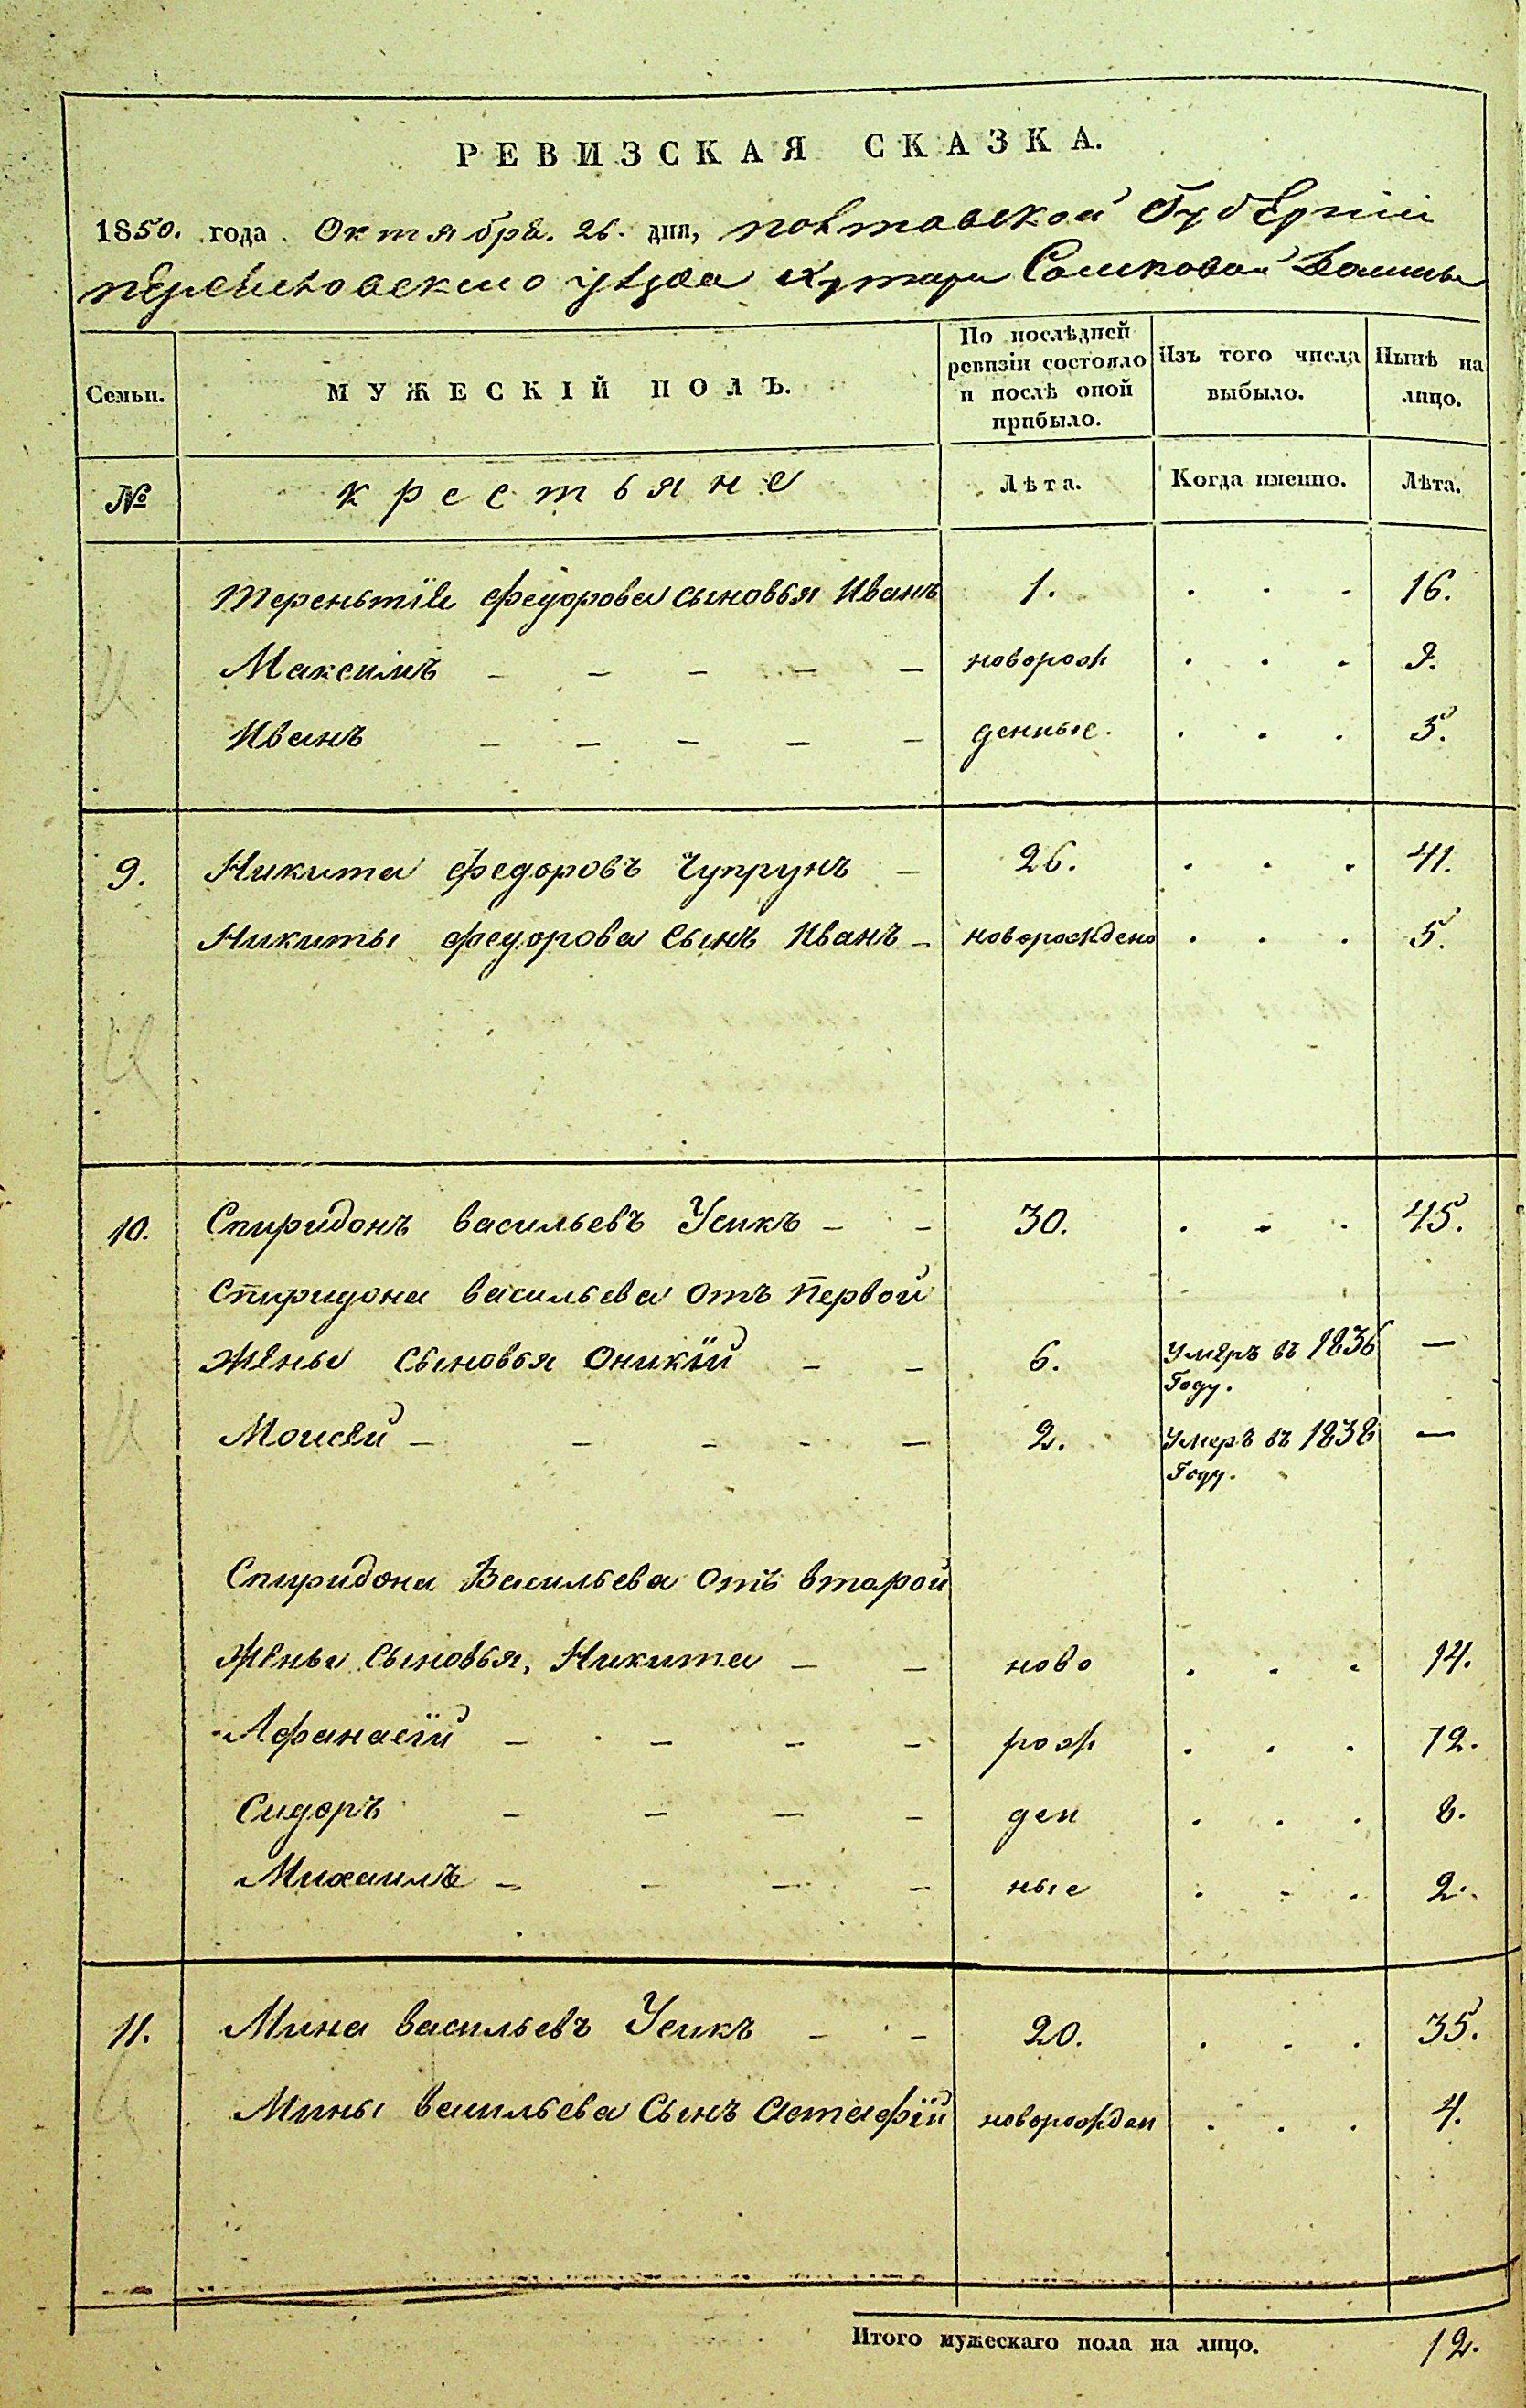 РЕВИЗСКАЯ СКАЗКА.
1850. года Октября. 26. дня, полтавской Губерніи
уѣзда хутора
Семьи. МУЖЕСКІЙ ПОЛЪ. По послѣдней ревизіи состояло и послѣ оной прибыло. Изъ того числа выбыло. Нынѣ на лицо.
№ крестьяне Лѣта. Когда именно. Лѣта.
Терентія Федорова сыновья Иванъ 1. . . . 16.
Максимъ - - - - - поворож . . . 9.
Иванъ - - - - - денные. . . . 5.
9. Никита Федоровъ Чупрунъ - 26. . . . 41.
Никиты Федорова Сынъ Иванъ - новорождено . . . 5.
10. Спиридонъ васильевъ Усикъ - - 30. . . . 45.
Спиридона васильева отъ первой
жены сыновья Оникій - - 6. умеръ въ 1836 Году. -
Моисей - - - - - 2. умеръ въ 1838 Году. -
Спиридона Васильева отъ второй
жены Сыновья, Никита - - ново . . . 14.
Афанасій - - - - рож . . . 12.
Сидоръ - - - - ден . . . 8.
Михаилъ - - - - ные . . . 2.
11. Мина васильевъ Усикъ - - 20. . . . 35.
Мины васильева Сынъ Астафій новорожден . . . 4.
Итого мужескаго пола на лицо. 12.